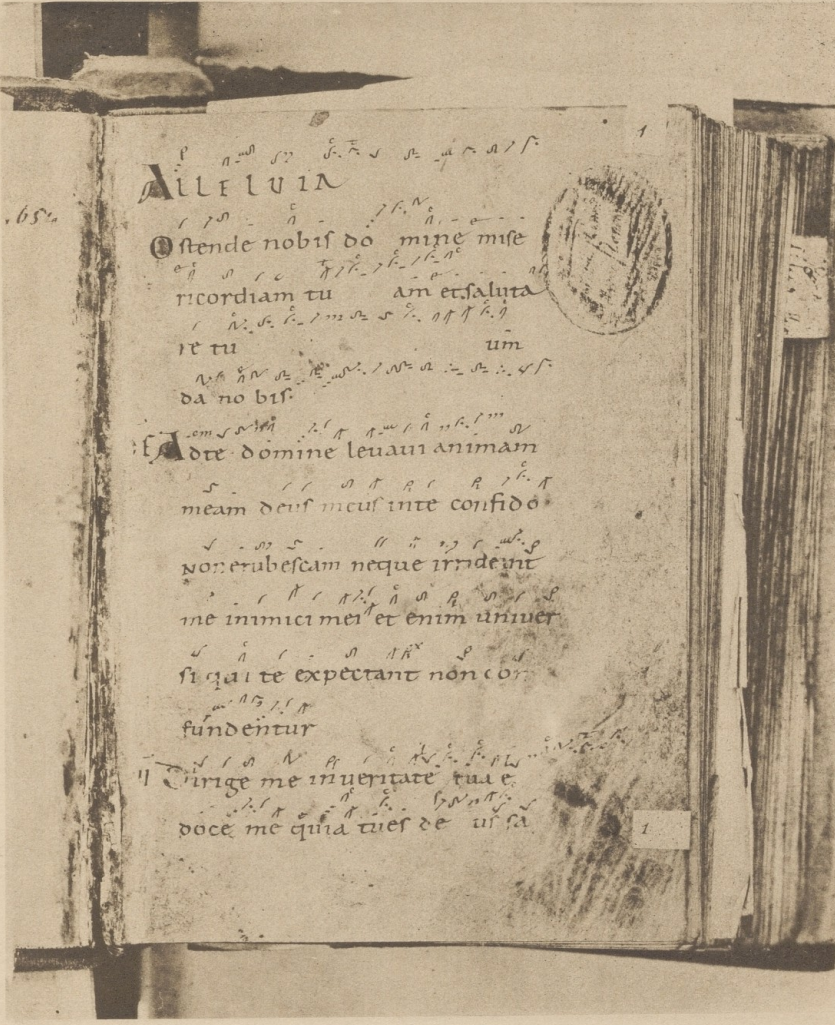 1
ALLELUIA
.65.
Ostende nobis do mine mise
ricordiam tu am et saluta
re tu um
da nobis.
Adte domine levavi animam
meam deus meus inte confido
Non erubescam neque irrideant
me inimici mei et enim univer
si qui te expectant non con
fundentur
Dirige me in veritate tua e
doce me quia tu es de us sa
1